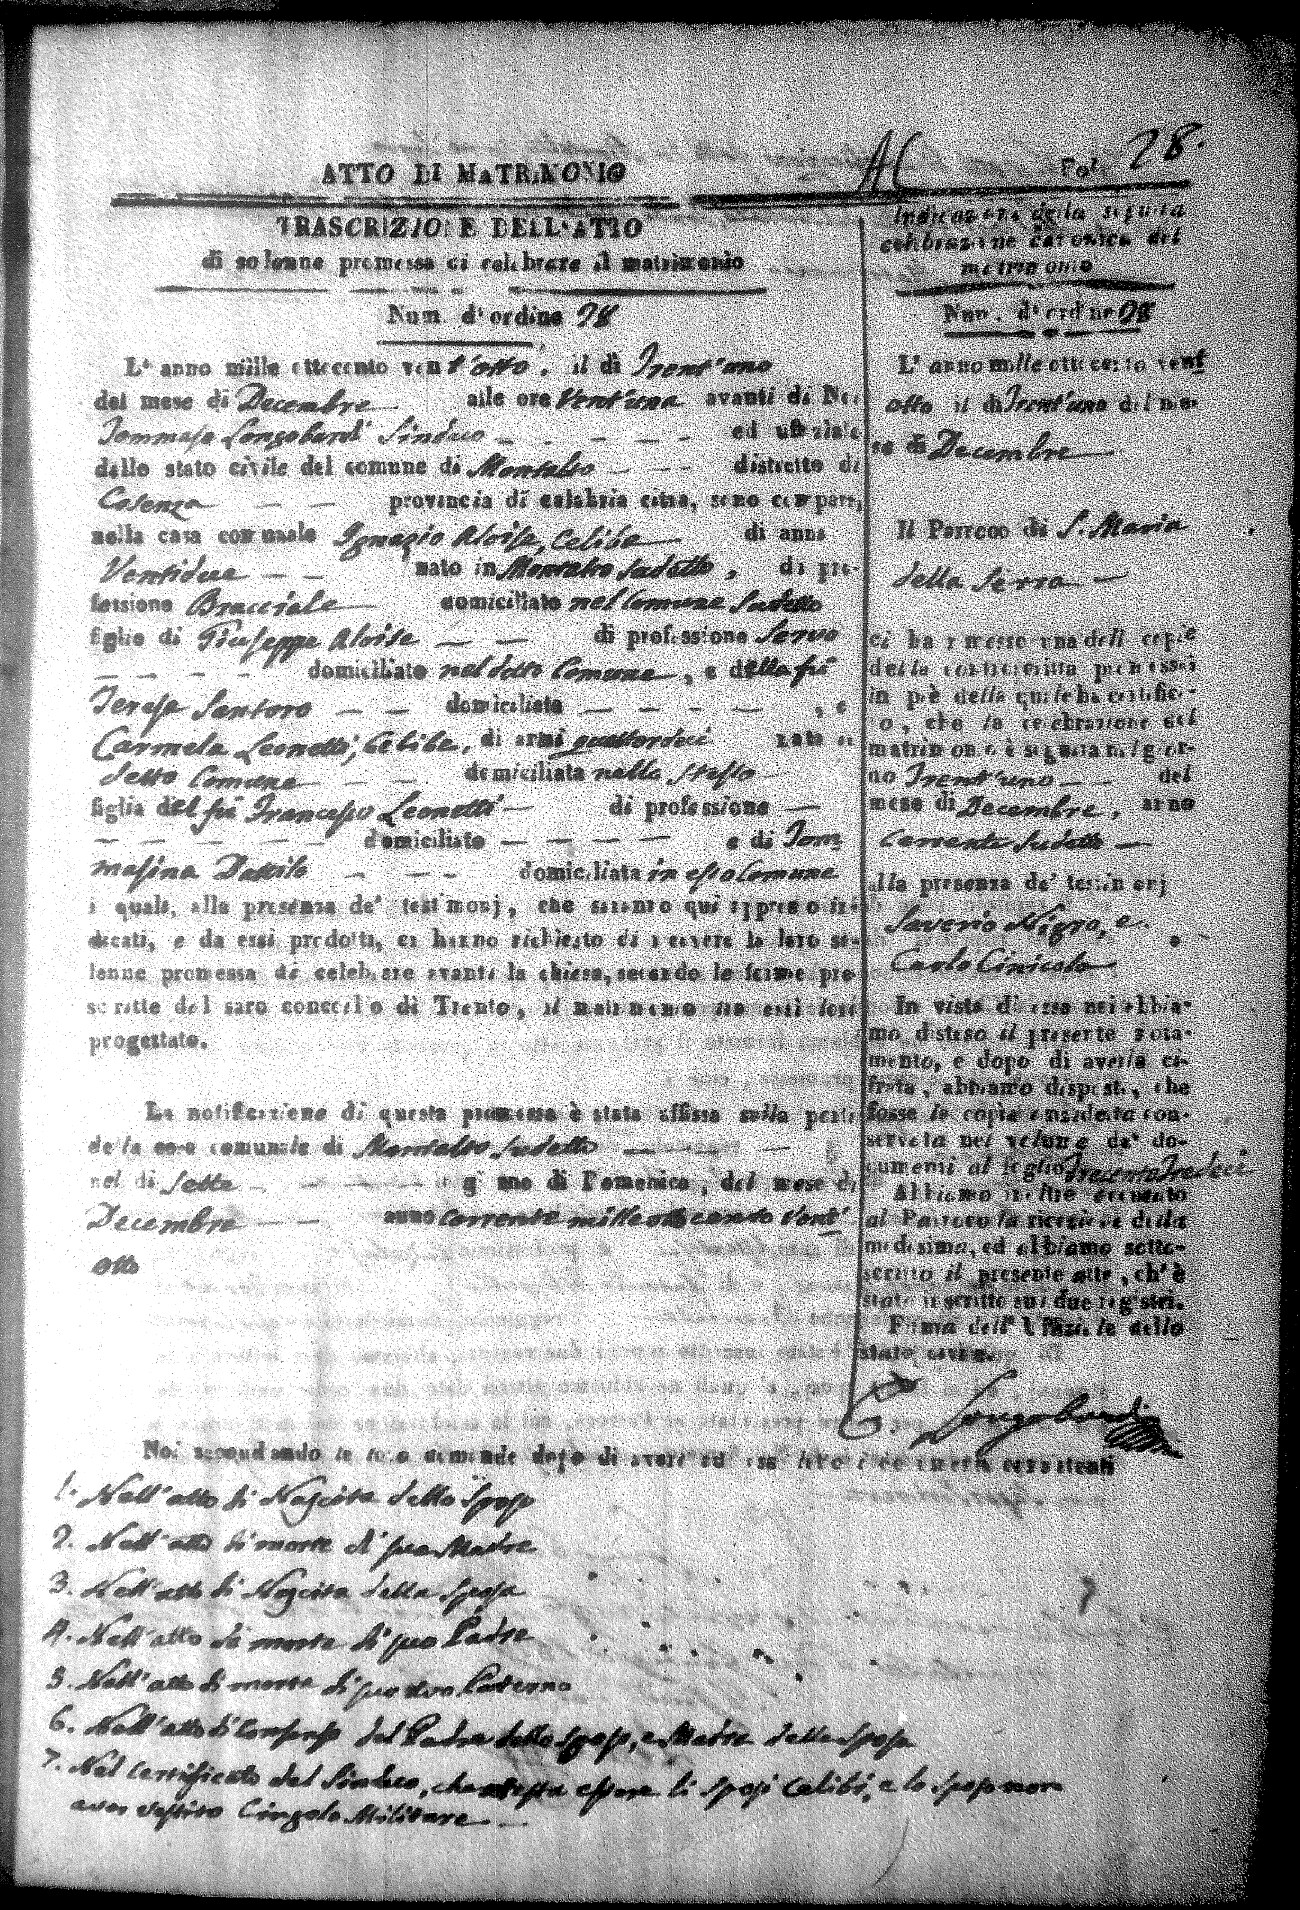 Fol. 28.
ATTO DI MATRIMONIO
TRASCRIZIONE DELL'ATTO
di solenne promessa di celebrare il matrimonio
Num. d'ordine 28
L'anno mille ottecento vent'otto, il dì Trent'uno
del mese di Decembre alle ore Vent'una avanti di Noi
Tommaso Longobardi Sindaco _ _ _ _ _ ed uffiziale
dello stato civile del comune di Montalto — — distretto di
Cosenza — — provincia di calabria citra, sono comparsi
nella casa comunale Ignazio Aloise, Celibe di anni
Ventidue — — nato in Montalto sudetto, di pro-
fessione Bracciale domiciliato nel Comune sudetto
figlio di Giuseppe Aloise — — di professione Servo
— — — — domiciliato nel detto Comune, e della fù
Teresa Santoro — — domiciliata — — — — — , e
Carmela Leonetti, Celibe, di anni quattordici nata in
detto Comune — — domiciliata nello stesso
figlia del fù Francesco Leonetti — di professione —
— — — — — domiciliato — — — — e di Tom
masina Dattilo — — — domiciliata in esso Comune
i quali, alla presenza de' testimonj, che saranno qui appresso in-
dicati, e da essi prodotti, ci hanno richiesto di ricevere la loro so-
lenne promessa di celebrare avanti la chiesa, secondo le forme pre
scritte dal sacro concilio di Trento, il matrimonio tra essi loro
progettato.
La notificazione di questa promessa è stata affissa sulla porta
della casa comunale di Montalto sudetto — —
nel dì Sette giorno di Domenica, del mese di
Decembre — — anno corrente mille otto cento Vent'
otto
Noi secondando le loro domande dopo di avere ad essi letto
1. Nell'atto di Nascita dello Sposo
2. Nell'atto di morte di sua Madre
3. Nell'atto di Nascita della Sposa
4. Nell'atto di morte di suo Padre
5. Nell'atto di morte di suo Avo Paterno
6. Nell'atto di Consenso del Padre dello Sposo, e Madre della Sposa
7. Nel Certificato del Sindaco, che attesta essere li sposi Celibi, e lo sposo non
aver vestito Cingolo Militare —
Indicazione della seguita
celebrazione canonica del
matrimonio
Num. d'ordine 28
L'anno mille ottecento vent'
otto il dì Trent'uno del me-
se di Decembre
Il Parroco di S. Maria
della Serra —
ci ha rimesso una delle copie
della controscritta promessa
in piè della quale ha certifica-
to, che la celebrazione del
matrimonio è seguita nel gior-
no Trent'uno — — del
mese di Decembre, anno
Corrente sudetto —
alla presenza de' testimonj
Saverio Nigro, e
Carlo Cinicola
In vista di essa noi abbia-
mo disteso il presente nota-
mento, e dopo di averla ci-
frata, abbiamo disposto, che
fosse la copia anzidetta con-
servata nel volume de' do-
cumenti al foglio Trecento Tredeci
Abbiamo inoltre accusato
al Parroco la ricezione della
medesima, ed abbiamo sotto-
scritto il presente atto, ch'è
stato inscritto sui due registri.
Firma dell'Uffiziale dello
stato civile.
Longobardi